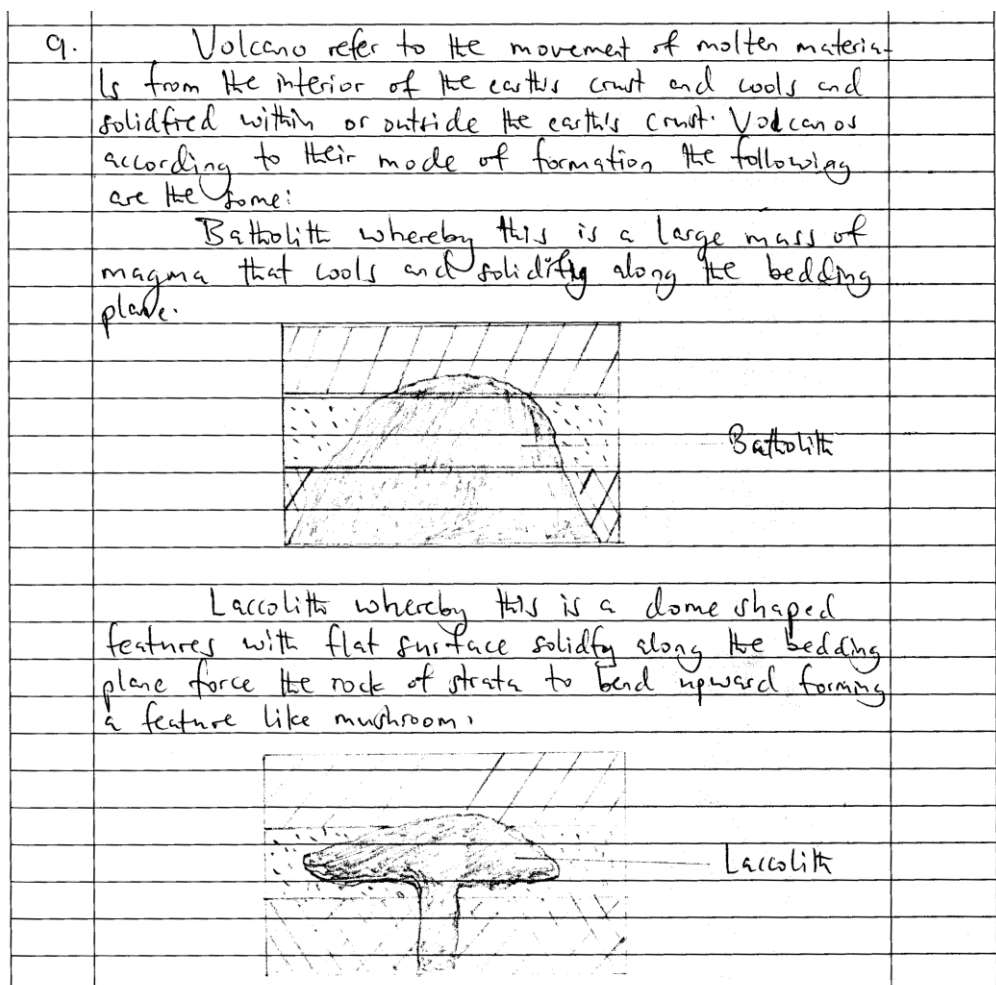 9. Volcano refer to the movement of molten materia-
ls from the interior of the earth's crust and cools and
solidfied within or outside the earth's crust. Volcanos
according to their mode of formation the following
are the some:
Batholith whereby this is a large mass of
magma that cools and solidify along the bedding
plane.
Batholith
Laccolith whereby this is a dome shaped
features with flat surface solidfy along the bedding
plane force the rock of strata to bend upward forming
a feature like mushroom.
Laccolith